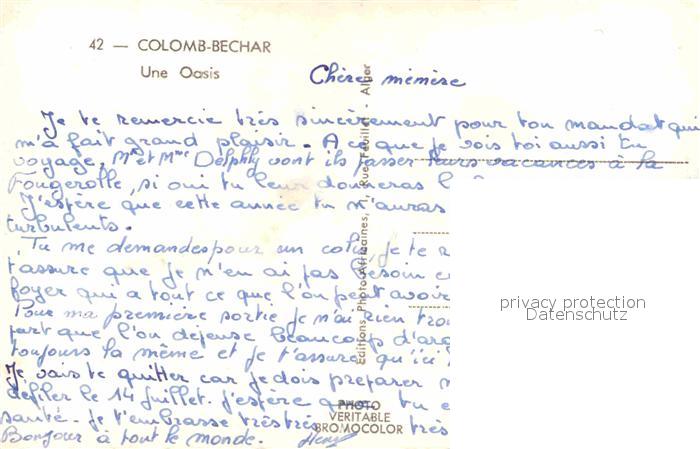 42 — COLOMB-BECHAR
Une Oasis
Chère mémère
Je te remercie très sincèrement pour ton mandat qui
m'a fait grand plaisir. A ce que je vois toi aussi tu
voyage, Mr et Mme Delphly vont ils passer leurs vacances à la
Fougerolle, si oui tu leur donneras l
J'espère que cette année tu n'auras
turbulents.
Tu me demandes pour un colis, je te r
t'assure que je n'en ai pas besoin c
foyer qui a tout ce que l'on peut avoir
Pour ma première sortie je n'ai rien trou
part que l'on dépense beaucoup d'arg
toujours la même et je t'assure qu'ici
Je vais te quitter car je dois préparer
défiler le 14 juillet. J'espère que tu e
santé. Je t'embrasse très très très
Bonjour à tout le monde.
Editions Photo-Africaines, Rue Feuillet - Alger
PHOTO
VERITABLE
BROMOCOLOR
privacy protection
Datenschutz